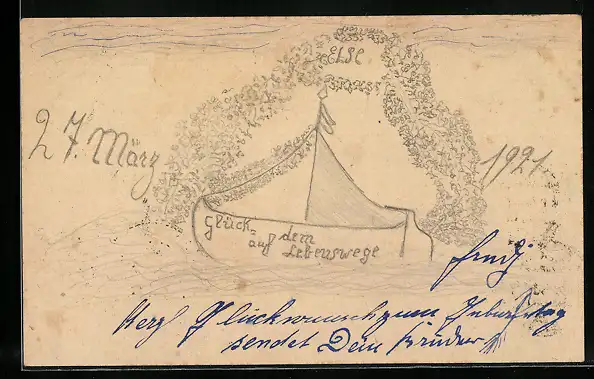 ELSE
27. März 1921
Glück=
auf dem
Lebenswege
Herzl Glückwunsch zum Geburtstag
sendet Dein Bruder